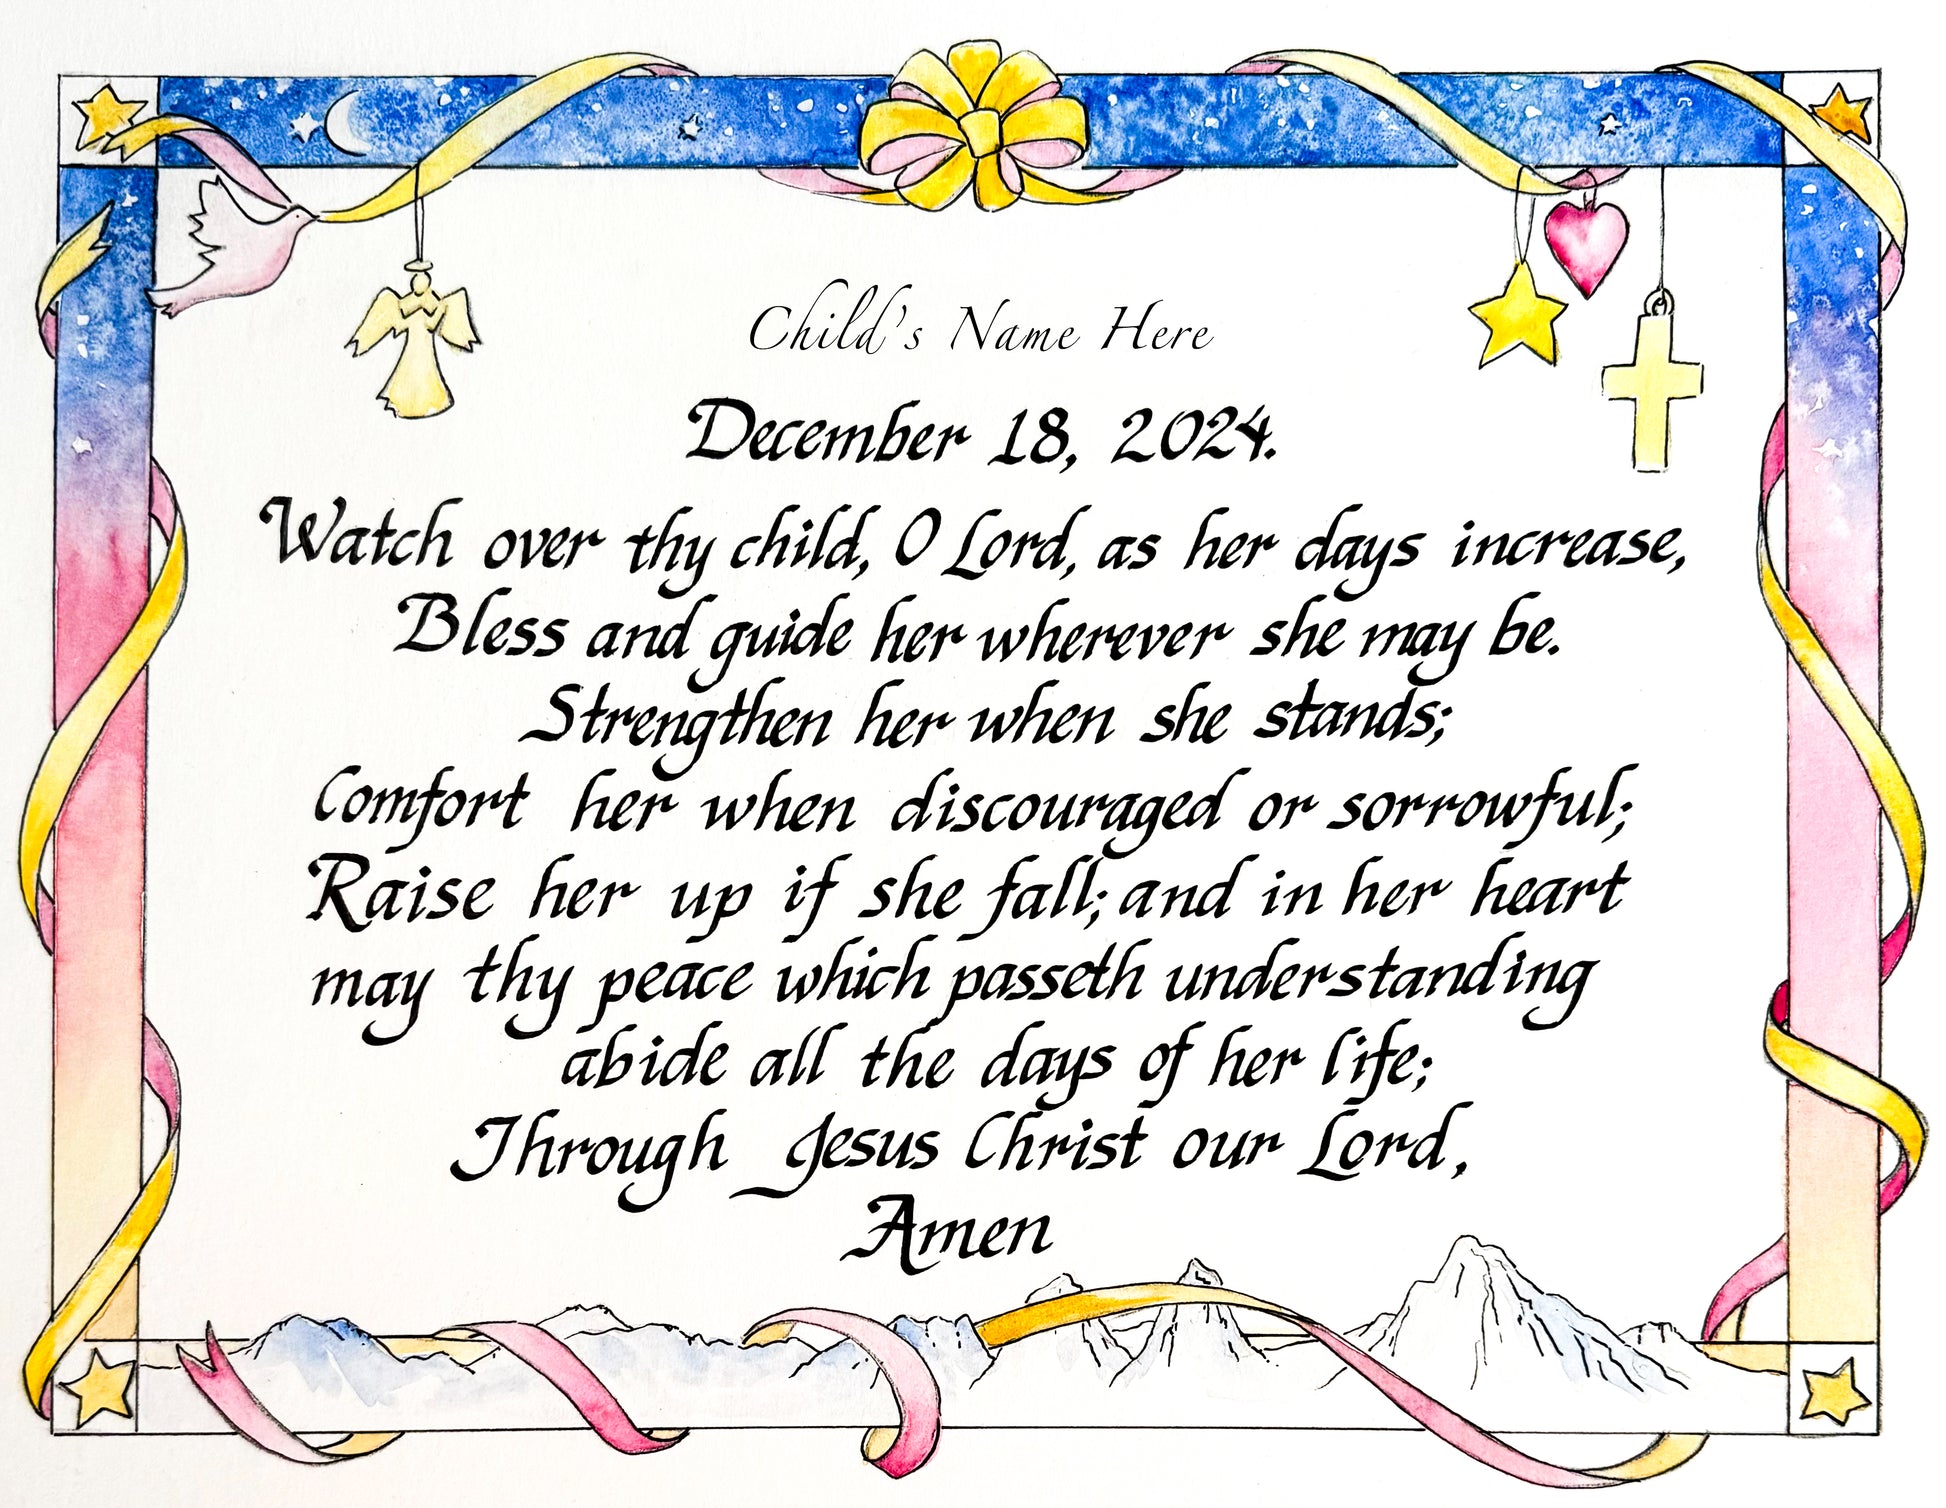 Child's Name Here
December 18, 2024.
Watch over thy child, O Lord, as her days increase,
Bless and guide her wherever she may be.
Strengthen her when she stands;
Comfort her when discouraged or sorrowful;
Raise her up if she fall; and in her heart
may thy peace which passeth understanding
abide all the days of her life;
Through Jesus Christ our Lord,
Amen